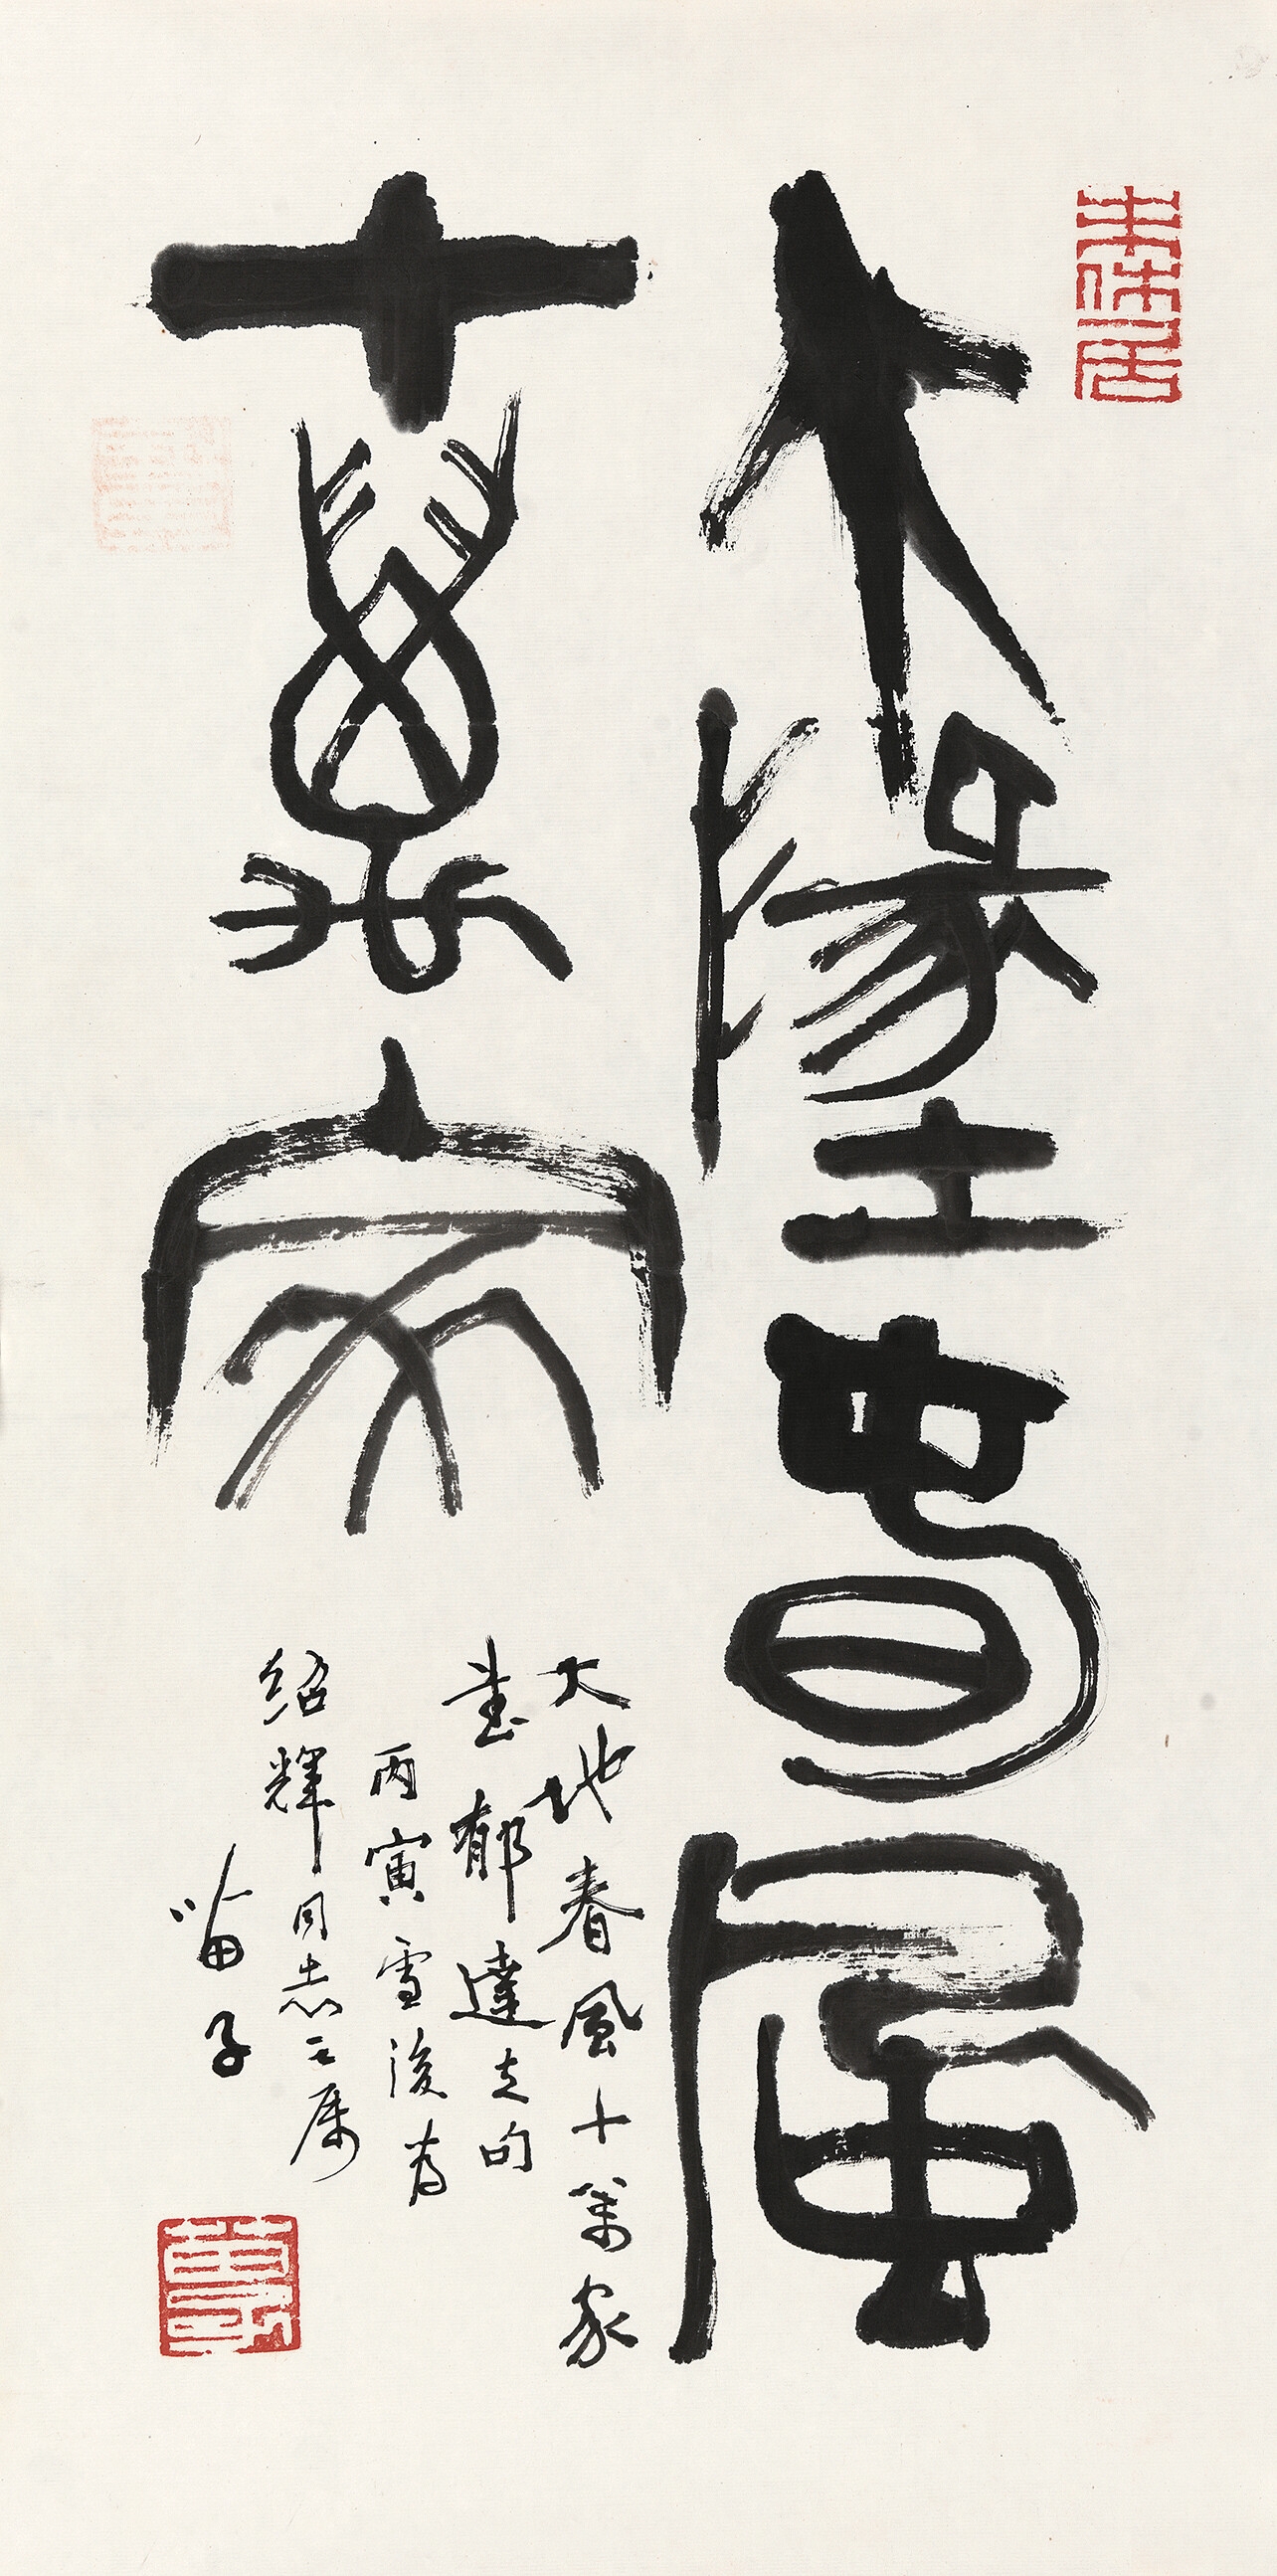 大墬春風
十萬家
大地春風十萬家
書郁達夫句
丙寅雪後为
紹輝同志正属